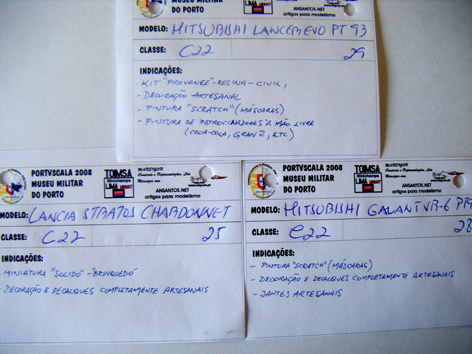 MUSEU MILITAR
DO PORTO
LIMA
ANSANTOS.NET
artigos para modelismo
MODELO: MITSUBISHI LANCER EVO PT 93
CLASSE: C22 29
INDICAÇÕES:
- KIT "PROVENCE" - RESINA - CIVIL,
- DECORAÇÃO ARTESANAL
- PINTURA "SCRATCH" (MÁSCARAS)
- PINTURA DE PATROCINADORES À MÃO LIVRE
(COCA-COLA, GRANZ, ETC)
PORTVSCALA 2008
MUSEU MILITAR
DO PORTO
LIMA
ANSANTOS.NET
artigos para modelismo
MODELO: LANCIA STRATOS CHARDONNET
CLASSE: C22 25
INDICAÇÕES:
MINIATURA "SOLIDO" - "BRINQUEDO"
- DECORAÇÃO E DECALQUES COMPLETAMENTE ARTESANAIS
PORTVSCALA 2008
MUSEU MILITAR
DO PORTO
LIMA
ANSANTOS.NET
artigos para modelismo
MODELO: MITSUBISHI GALANT VR-6
CLASSE: C22 28
INDICAÇÕES:
- PINTURA "SCRATCH" (MÁSCARAS)
- DECORAÇÃO E DECALQUES COMPLETAMENTE ARTESANAIS
- JANTES ARTESANAIS